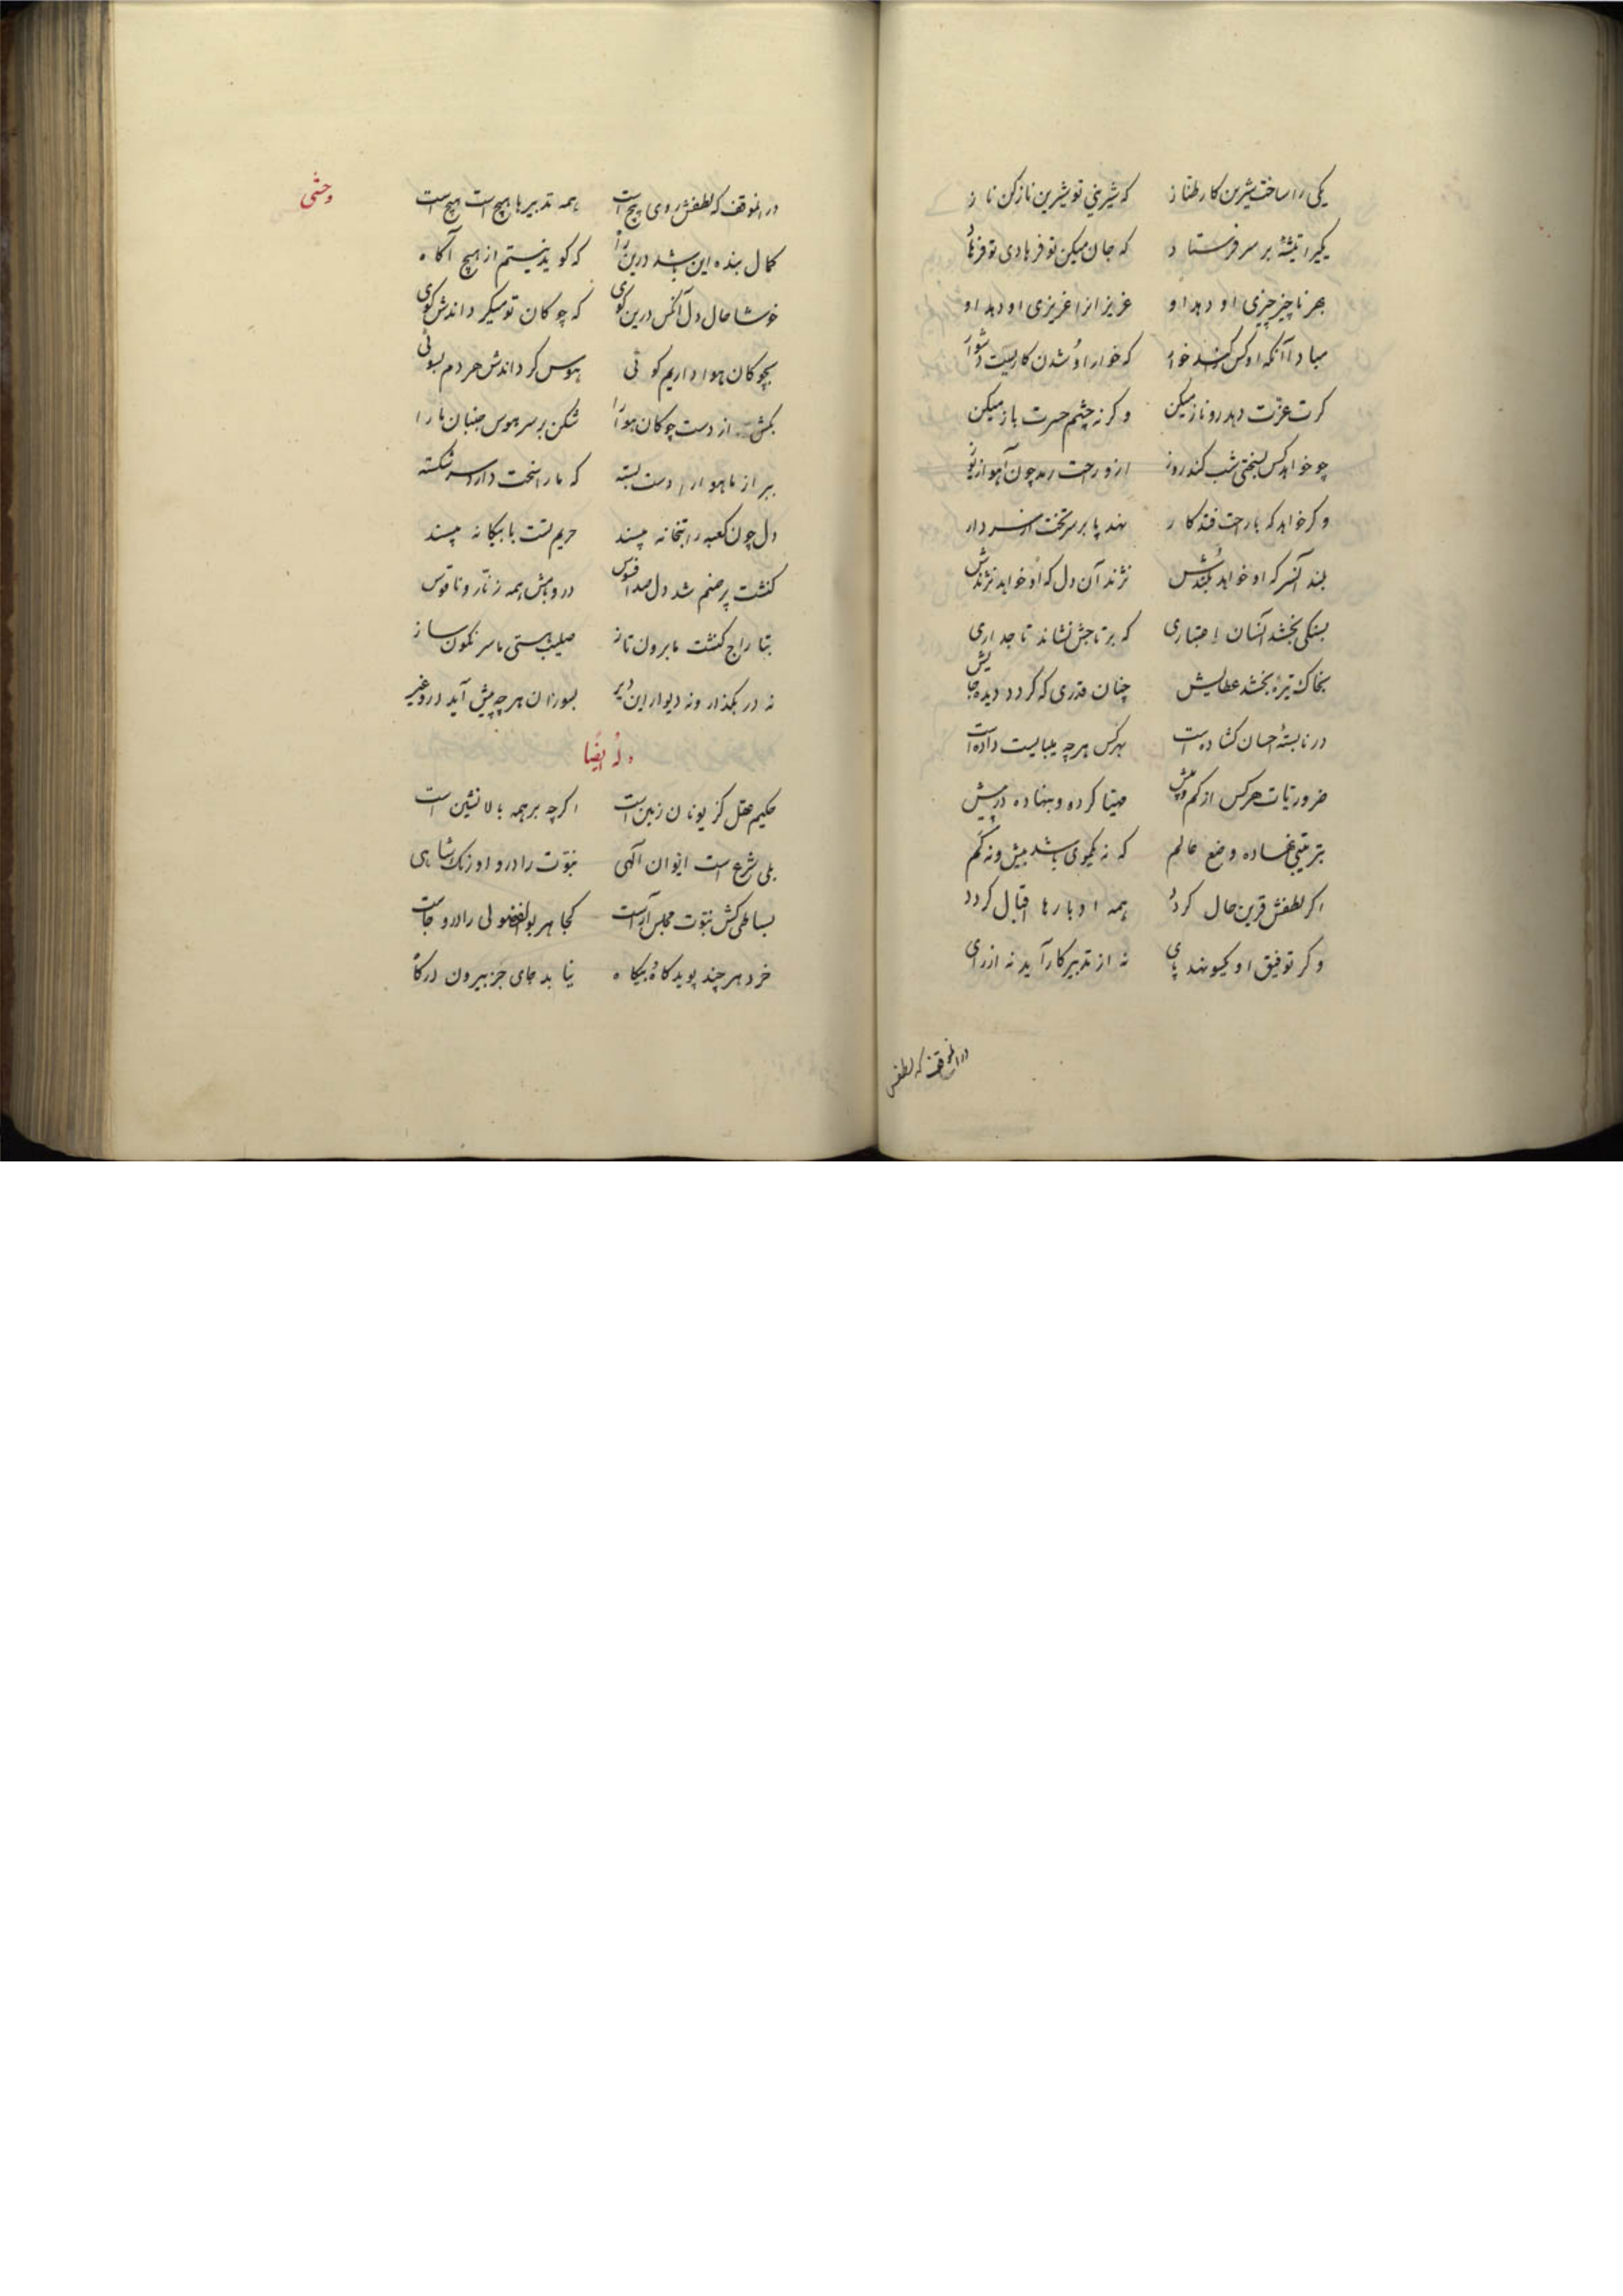 یکی را ساخت شیرین کار طناز که شیرینی تو شیرین ناز کن ناز
یکیرا تیشهٔ بر سر فرستاد که جان میکن تو فرهادی تو فرهاد
بهر ناچیز چیزی او دهد او عزیزانرا عزیزی او دهد او
مبادا آنکه او کس را کند خوار که خوار او شدن کاریست دشوار
کرت عزت دهد رو ناز میکن وکرنه چشم حسرت باز میکن
چو خواهد کس بسختی شب کند روز ازو راحت رمد چون آهو از یوز
وکر خواهد که با راحت فتد کار نهد پا بر سر تخت از سر دار
بلند آنسر که او خواهد بلندش نژند آن دل که او خواهد نژندش
بسنکی بخشد آنسان اعتباری که بر تاجش نشاند تاجداری
بخاک تیرهٔ بخشد عطایش چنان قدری که کردد دیده جایش
در نابستهٔ احسان کشادست بهر کس هرچه میبایست دادست
ضروریات هر کس از کم و بیش مهیا کرده و بنهاده در پیش
بترتیبی نهاده وضع عالم که نه یکموی باشد بیش و نه کم
اکر لطفش قرین حال کردد همه ادبارها اقبال کردد
وکر توفیق او یکسو نهد پای نه از تدبیر کار آید نه از رای
در انموقف که لطفش
وحشی
در انموقف که لطفش روی پیچ است همه تدبیرها هیچ است هیچ است
کمال بنده این باشد درین راه که کوید نیستم از هیچ آکاه
خوشا حال دل آنکس درین کوی که چوکان تو میکرداندش کوی
بچوکان هوا داریم کوئی هوس کرداندش هر دم بسوئی
بکش از دست چوکان هوا را شکن بر سر هوس جنبان ما را
ببر از ما هوا را دست بسته که ما را سخت دارد سر شکسته
دل چون کعبه را بتخانه مپسند حریم تست با بیکانه مپسند
کنشت پر صنم شد دل صد افسوس در و بامش همه زنار و ناقوس
بتاراج کنشت ما برون تاز صلیب هستی ما سرنکون ساز
نه در بکذار و نه دیوار این دیر بسوزان هرچه پیش آید درو غیر
وله ایضًا
حکیم عقل کز یونان زمین است اکرچه بر همه بالانشین است
بلی شرع است ایوان الهی نبوت را درو اورنک شاهی
بساطی کش نبوت مجلس آراست کجا هر بوالفضولی را درو جاست
خرد هرچند پوید کاه و بیکاه نیابد جای جز بیرون درکاه